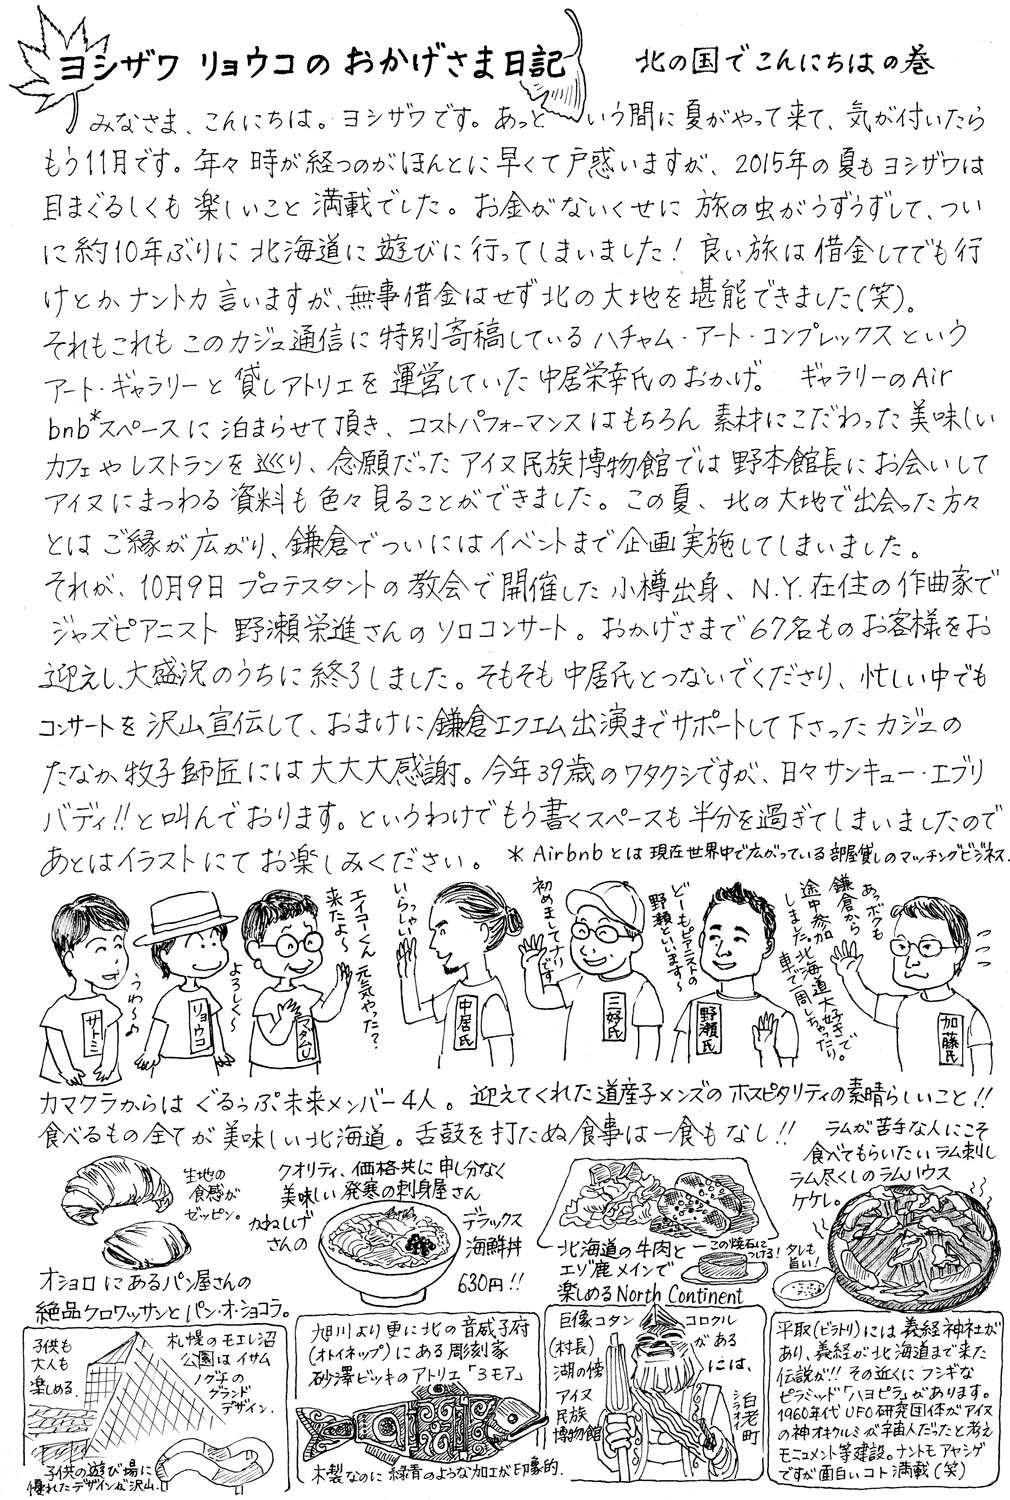 ヨシザワ リョウコの おかげさま日記
北の国で こんにちは の巻
みなさま、こんにちは。ヨシザワです。あっと いう間に夏がやって来て、気が付いたら
もう11月です。年々時が経つのがほんとに早くて戸惑いますが、2015年の夏もヨシザワは
目まぐるしくも楽しいこと満載でした。お金がないくせに旅の虫がうずうずして、つい
に約10年ぶりに北海道に遊びに行ってしまいました！良い旅は借金してでも行
けとかナントカ言いますが、無事借金はせず北の大地を堪能できました(笑)。
それもこれもこのカジュ通信に特別寄稿しているハチャム・アート・コンプレックスという
アート・ギャラリーと貸しアトリエを運営していた中居栄幸氏のおかげ。 ギャラリーのAir
bnb*スペースに泊まらせて頂き、コストパフォーマンスはもちろん素材にこだわった美味しい
カフェやレストランを巡り、念願だったアイヌ民族博物館では野本館長にお会いして
アイヌにまつわる資料も色々見ることができました。この夏、北の大地で出会った方々
とはご縁が広がり、鎌倉でついにはイベントまで企画実施してしまいました。
それが、10月9日プロテスタントの教会で開催した小樽出身、N.Y.在住の作曲家で
ジャズピアニスト野瀬栄進さんのソロコンサート。おかげさまで67名ものお客様をお
迎えし、大盛況のうちに終了しました。そもそも中居氏とつないでくださり、忙しい中でも
コンサートを沢山宣伝して、おまけに鎌倉エフエム出演までサポートして下さったカジュの
たなか牧子師匠には大大大感謝。今年39歳のワタクシですが、日々サンキュー・エブリ
バディ!!と叫んでおります。というわけでもう書くスペースも半分を過ぎてしまいましたので
あとはイラストにてお楽しみください。
*Airbnbとは現在世界中で広がっている部屋貸しのマッチングビジネス.
うわ〜♪
サトミ
よろしく〜
リョウコ
エイコーくん 元気やった？
来たよ〜
マダムU
いらっしゃい
中居氏
初めまして
三好氏
どーもピアニストの
野瀬といいます〜
野瀬氏
あっボクも
鎌倉から
途中参加
しました。北海道大好きで
車で一周しちゃったり。
加藤氏
カマクラからは ぐるっぷ未来メンバー4人。迎えてくれた道産子メンズのホスピタリティの素晴らしいこと!!
食べるもの全てが美味しい北海道。舌鼓を打たぬ食事は一食もなし!!
生地の
食感が
ゼッピン。
オショロにあるパン屋さんの
絶品クロワッサンとパン・オ・ショコラ。
クオリティ、価格共に申し分なく
美味しい発寒の刺身屋さん
かねしげ
さんの
デラックス
海鮮丼
630円!!
北海道の牛肉と
エゾ鹿メインで
楽しめるNorth Continent
この焼石に
つける!
ラムが苦手な人にこそ
食べてもらいたいラム刺し
ラム尽くしのラムハウス
ケケレ。
タレも
旨い!
子供も
大人も
楽しめる.
札幌のモエレ沼
公園はイサム
ノグチの
グランド
デザイン.
子供の遊び場に
優れたデザインが沢山.
旭川より更に北の音威子府
(オトイネップ)にある彫刻家
砂澤ビッキのアトリエ「3モア」
木製なのに緑青のような加工が印象的.
巨像コタン コロクル
(村長) がある
湖の傍 には、
アイヌ
民族
博物館
白老町
シラオイ
平取(ビラトリ)には義経神社が
あり、義経が北海道まで来た
伝説が!! その近くにフシギな
ピラミッド「ハヨピラ」があります。
1960年代UFO研究団体がアイヌ
の神オキクルミが宇宙人だったと考え
モニュメント等建設。ナントモアヤシゲ
ですが面白いコト満載(笑)